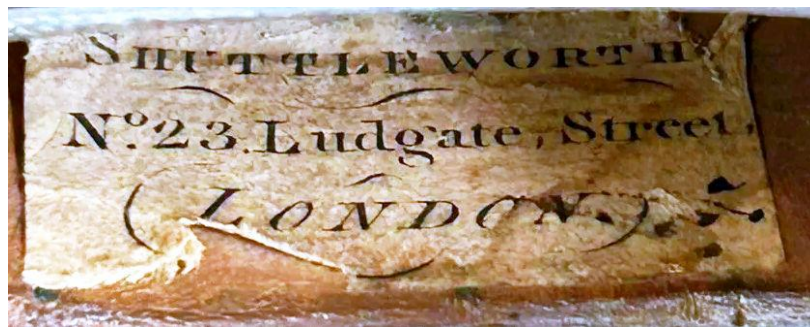 SHUTTLEWORTH
Nº. 23. Ludgate, Street,
(LONDON.)